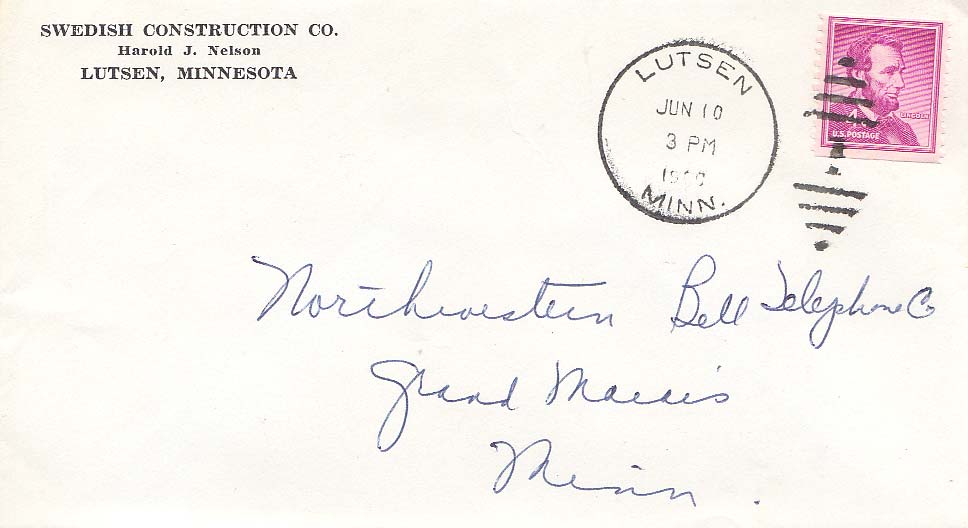 SWEDISH CONSTRUCTION CO.
Harold J. Nelson
LUTSEN, MINNESOTA
LUTSEN
JUN 10
3 PM
MINN.
LINCOLN
U.S. POSTAGE
Northwestern Bell Telephone Co
Grand Marais
Minn.